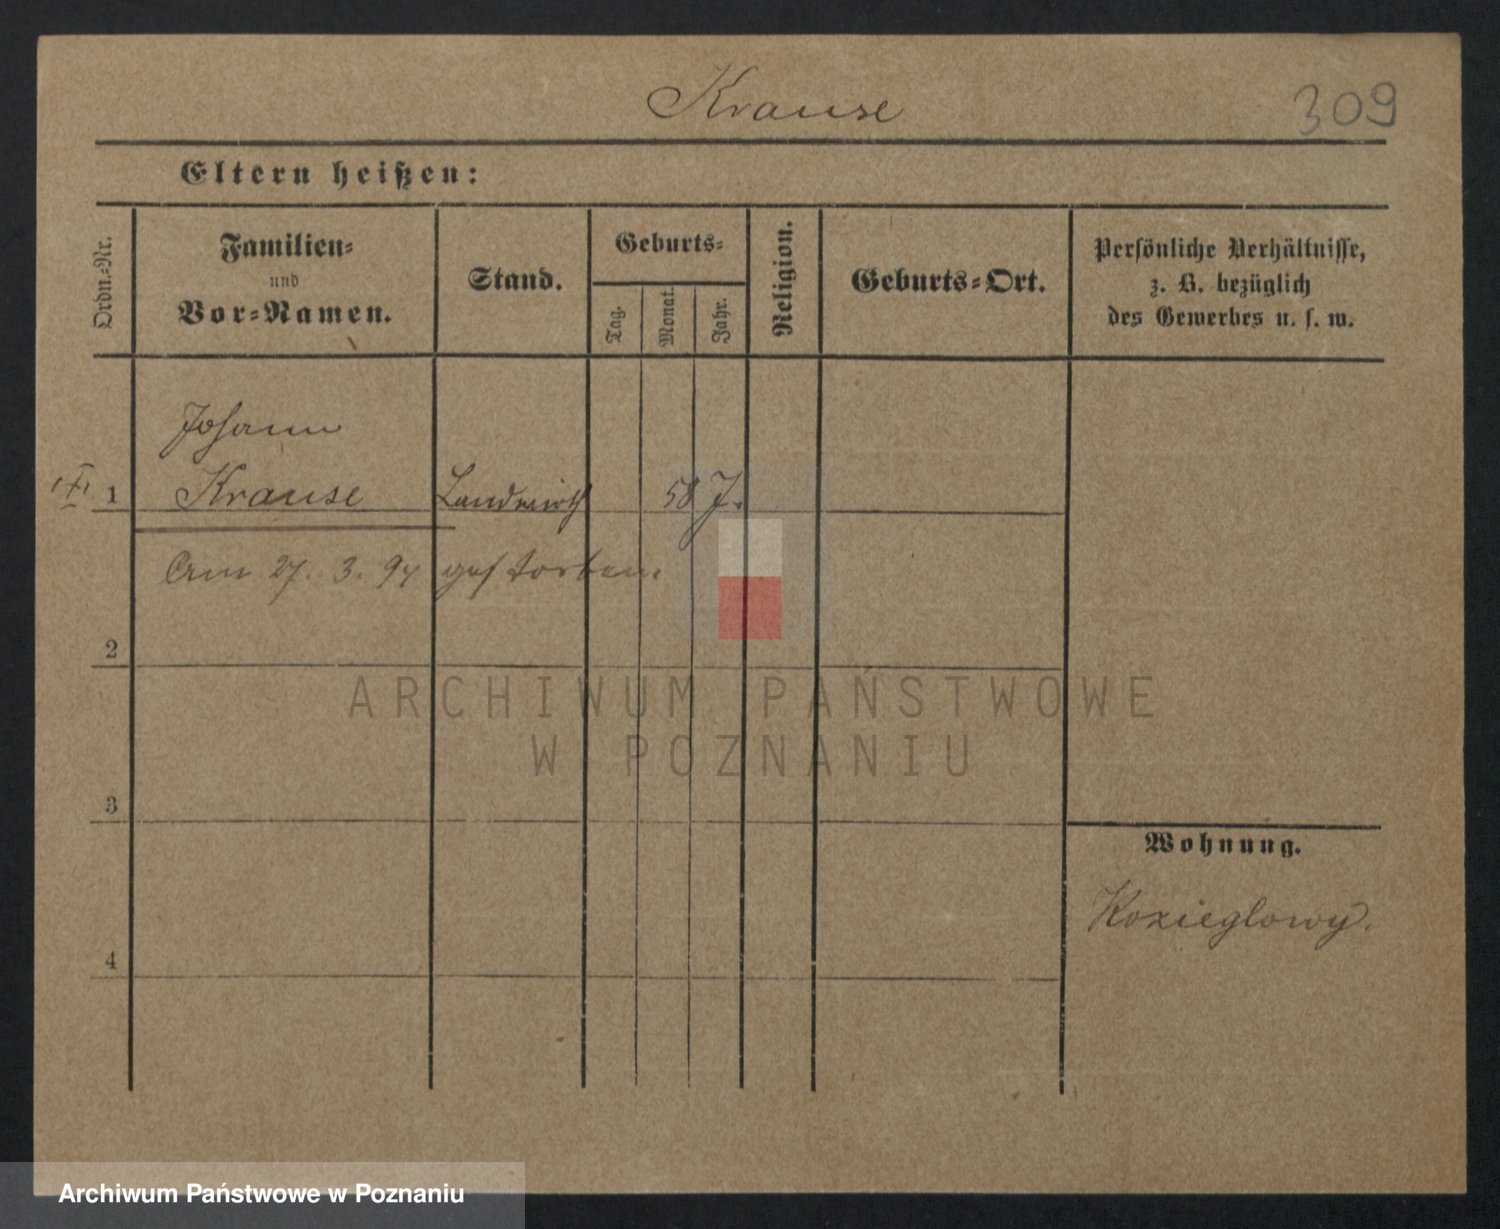 Krause
309
Eltern heißen:
Ordn.-Nr.
Familien-
und
Vor-Namen.
Stand.
Geburts-
Tag.
Monat.
Jahr.
Religion.
Geburts-Ort.
Persönliche Verhältnisse,
z. B. bezüglich
des Gewerbes u. s. w.
Johann
1 Krause Landwirth 58 J.
Am 27. 3. 94 gestorben.
2
ARCHIWUM PAŃSTWOWE
W POZNANIU
3
Wohnung.
Kozieglowy.
4
Archiwum Państwowe w Poznaniu